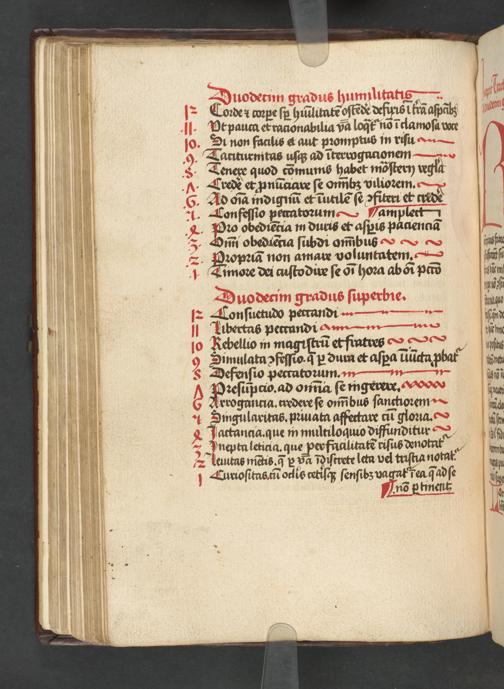 Duodecim gradus humilitatis
12 Corde ⁊ corpe sp huilitatem ostēdē defixis ī trā aspcibꝫ
11 Ut pauca et racionabilia v̄a loqt' nō ī clamosa voce
10 Si non facilis et aut promptus in risu
9 Taciturnitas usqꝫ ad īterrogacionem
8 Tenere quod cōmunis habet mōstery regla
7 Credē et p̄nūciare se om̄ibꝫ viliorem.
6 Ad oīa indignū et īutilē se ꝯfiteri et credē
5 Confessio peccatorum amplect
4 Pro obediēcia in duris et aspis pacienciā
3 Om̄i obediēcia subdi om̄ibus
2 Propriā non amare voluntatem.
1 Timore dei custodire se oī hora ab oī pctō
Duodecim gradus superbie.
12 Consuetudo peccandi
11 Libertas peccandi
10 Rebellio in magistrū et fratres
9 Simulata ꝯfessio. q̄ p dura et aspa iūūcta ꝓbat'
8 Defensio peccatorum.
7 Presūpcio. ad omnia se ingerere.
6 Arrogancia. credere se om̄ibus sanctiorem
5 Singularitas. priuata affectare cū gloria.
4 Iactancia. que in multiloquio diffunditur
3 Inepta leticia. que per facilitatē risus denotat'
2 Leuitas mētis. q̄ p v̄ba īdistrete leta vel tristia notat'
1 Curiositas. cū oclis cetisqꝫ sensibꝫ vagat' ī ea q̄ ad se
nō ptinent